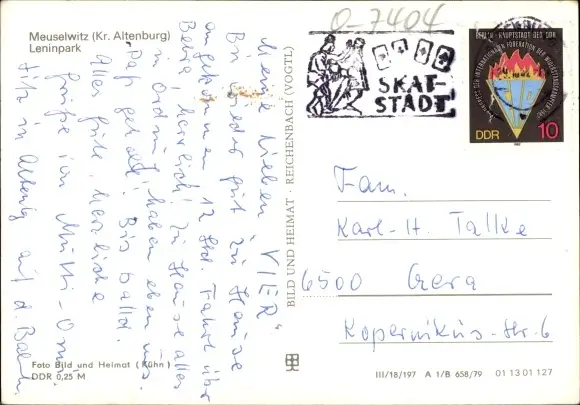 O-7404
Meuselwitz (Kr. Altenburg)
Leninpark
SKAT-
STADT
BERLIN - HAUPTSTADT DER DDR
DDR 10
Meine lieben "VIER"
Bin wieder gut zu Hause
angekommen 12 Std. Fahrt über
Bebra, herrlich! Zu Hause alles
in Ordnung, haben eben uns.
Pap geholt. Bis bald.
Alles Gute, herzliche
Grüße von Mutti-Omi
sitz in Altenbg auf d. Bahn
BILD UND HEIMAT · REICHENBACH (VOGTL)
Fam.
Karl-H. Tallke
6500 Gera
Kopernikus-str. 6
Foto Bild und Heimat (Kühn)
DDR 0,25 M
III/18/197 A 1/B 658/79 01 13 01 127